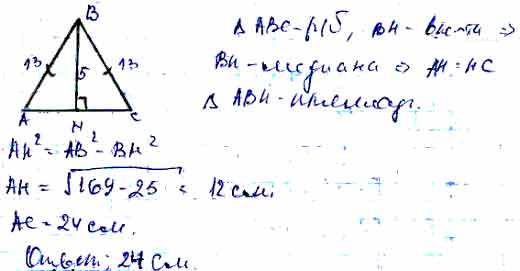 B
13 5 13
A H C
Δ ABC - р/б, BH - высота ⇒
BH - медиана ⇒ AH = HC
Δ ABH - прямоуг.
AH² = AB² - BH²
AH = √169-25 = 12 см.
AC = 24 см.
Ответ: 24 см.